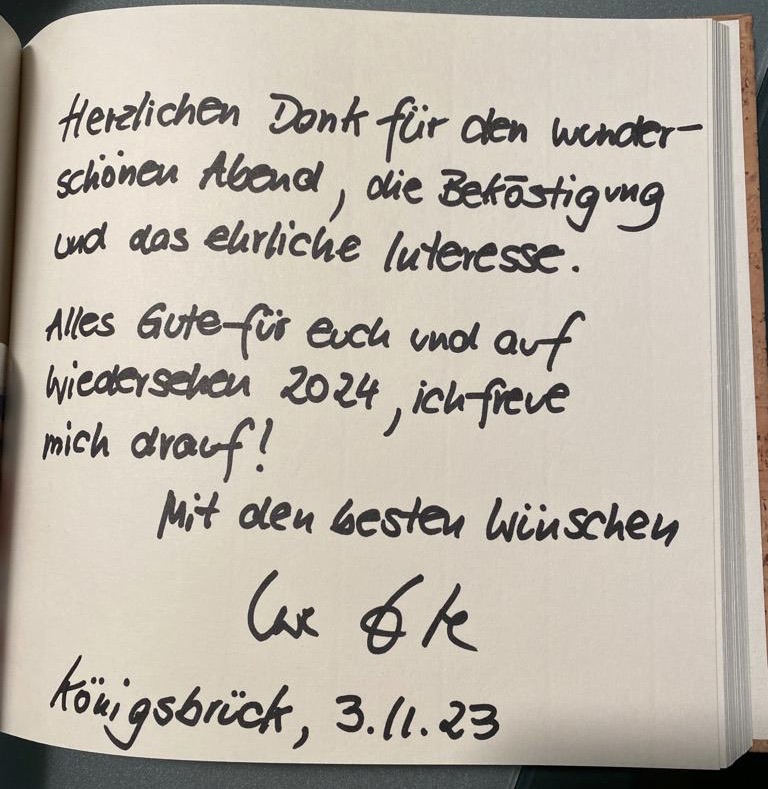 Herzlichen Dank für den wunder-
schönen Abend, die Beköstigung
und das ehrliche Interesse.
Alles Gute für euch und auf
Wiedersehen 2024, ich freue
mich drauf!
Mit den besten Wünschen
Königsbrück, 3.11.23